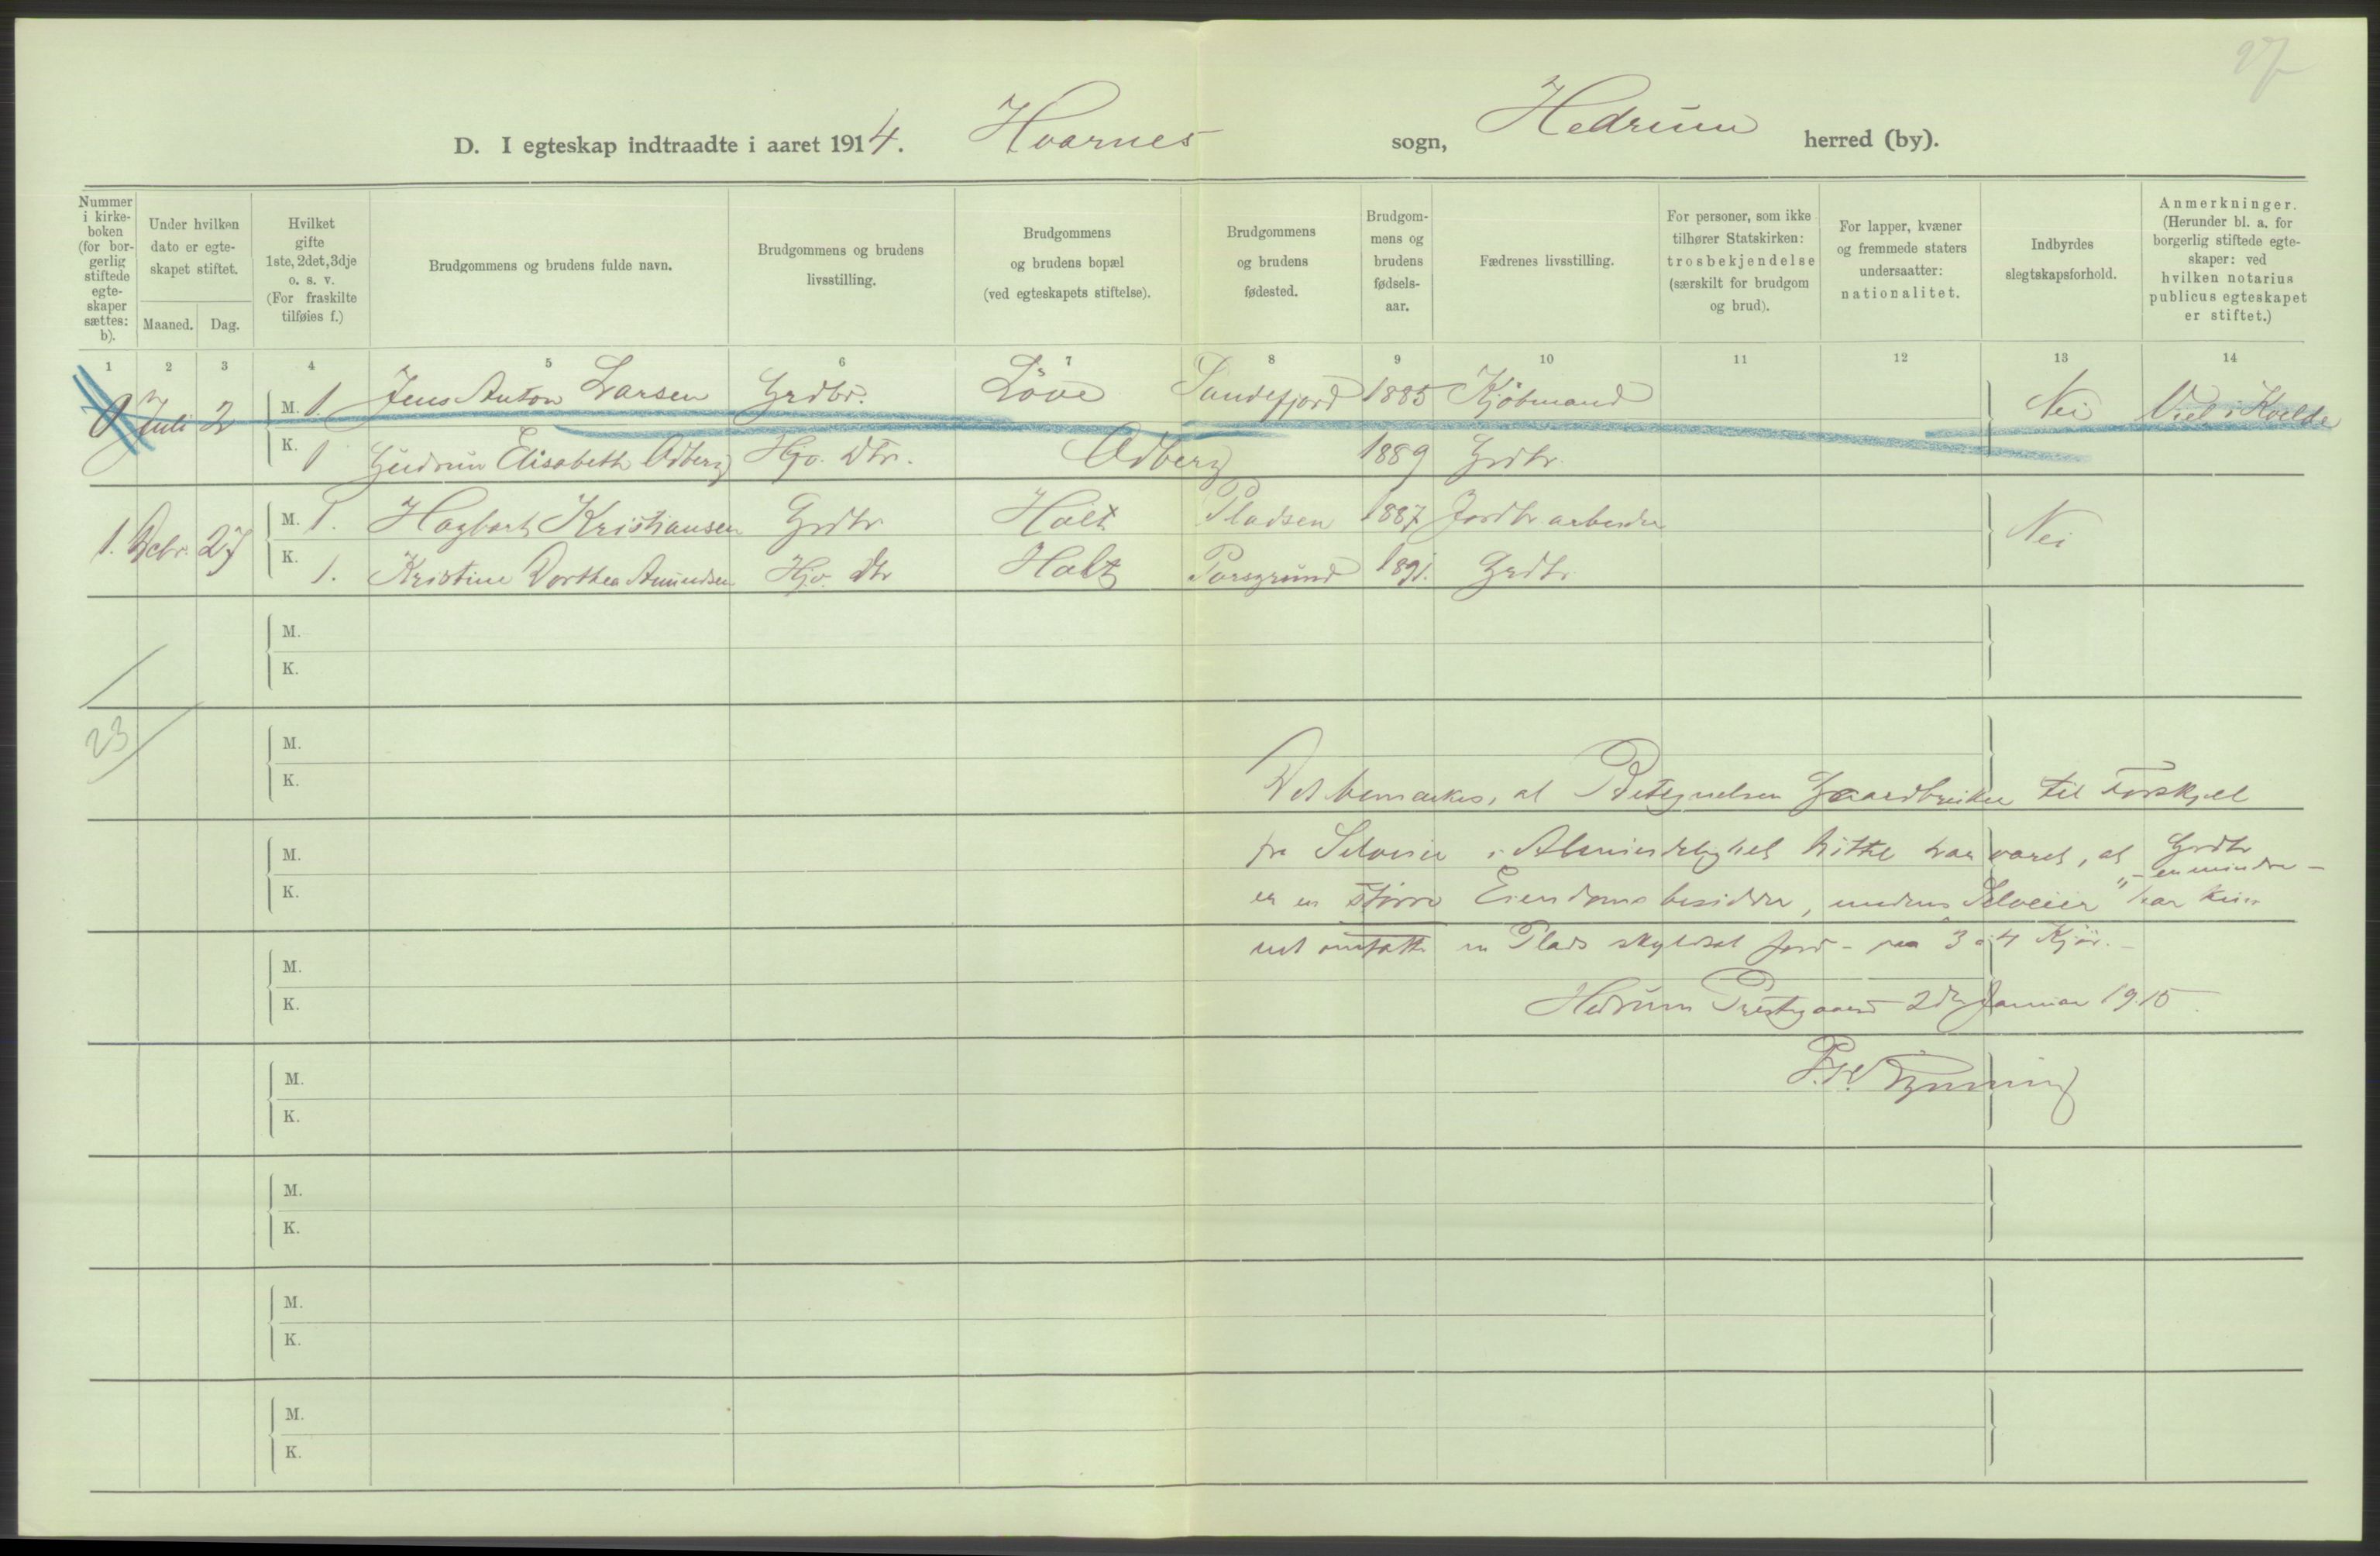 27
D. I egteskap indtraadte i aaret 1914. Hvarnes sogn, Hedrum herred (by).
Nummer i kirke- boken (for bor- gerlig stiftede egte- skaper sættes: b).
Under hvilken dato er egte- skapet stiftet.
Maaned. Dag.
Hvilket gifte 1ste, 2det, 3dje o. s. v. (For fraskilte tilføies f.)
Brudgommens og brudens fulde navn.
Brudgommens og brudens livsstilling.
Brudgommens og brudens bopæl (ved egteskapets stiftelse).
Brudgommens og brudens fødested.
Brudgom- mens og brudens fødsels- aar.
Fædrenes livsstilling.
For personer, som ikke tilhører Statskirken: trosbekjendelse (særskilt for brudgom og brud).
For lapper, kvæner og fremmede staters undersaatter: nationalitet.
Indbyrdes slegtskapsforhold.
Anmerkninger. (Herunder bl. a. for borgerlig stiftede egte- skaper: ved hvilken notarius publicus egteskapet er stiftet.)
1 2 3 4 5 6 7 8 9 10 11 12 13 14
Juli 2 M. 1. Jens Anton Larsen Grdbr. Löve Sandefjord 1885 Kjöbmand Nei Viet i Kvelde
K. 1 Gudrun Elisabeth Odberg Hjv. Dtr. Odberg 1889 Grdbr.
1. Dcbr. 27 M. 1. Hagbart Kristiansen Grdbr Holt Pladsen 1887 Jordbr.arbeider Nei
K. 1. Kristine Dorthea Amundsen Hjv. Dtr Holt Porsgrund 1891. Grdbr
M.
K.
23
M.
K.
Det bemærkes, at Betegnelsen Gaardbruker til Forskjel
M.
fra Selveier i Almindelighet hittil har været, at Grdbr
K.
"- en mindre -
er en större Eiendomsbesidder, medens Selveier har kun
M.
omfatte en Plads skyldsat Jord - paa 3 a 4 Kjör. -
K.
Hedrum Prestegaard 2den Januar 1915
M.
K.
M.
K.
M.
K.
M.
K.